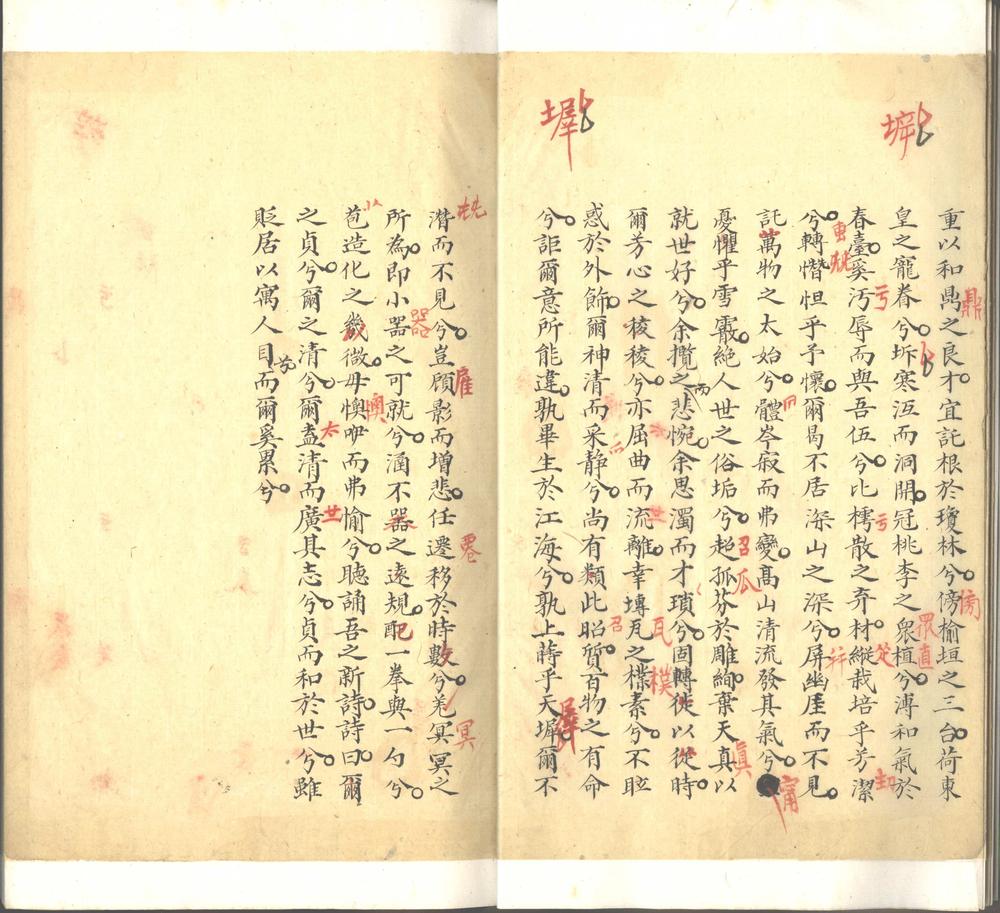 重以和鼎之良才宜託根於瓊林兮傍榆垣之三台荷東
皇之寵眷兮坼寒沍而洞開冠桃李之衆植兮溥和氣於
春臺奚汚辱而與吾伍兮比樗散之弃材縱栽培乎芳潔
兮轉憯怛乎予懷爾曷不居深山之深兮屏幽厓而不見
託萬物之太始兮體岑寂而弗變髙山清流發其氣兮
憂懼乎雪霰絕人世之俗垢兮超孤芬於雕絢棄天真以
就世好兮余攬之而悲惋余思濁而才瑣兮固轉徙以從時
爾芳心之稜稜兮亦屈曲而流離幸塼瓦之樸素兮不眩
惑於外飾爾神清而采静兮尚有類此昭質百物之有命
兮詎爾意所能違孰畢生於江海兮孰上蒔乎天墀爾不
潛而不見兮豈顧影而增悲任遷移於時數兮羌冥冥之
所為即小器之可就兮涵不器之遠規配一拳與一勺兮
苞造化之幾微毋懊咿而弗愉兮聽誦吾之新詩詩曰爾
之貞兮爾之清兮爾盍清而廣其志兮貞而和於世兮雖
貶居以寓人目兮而爾奚累兮